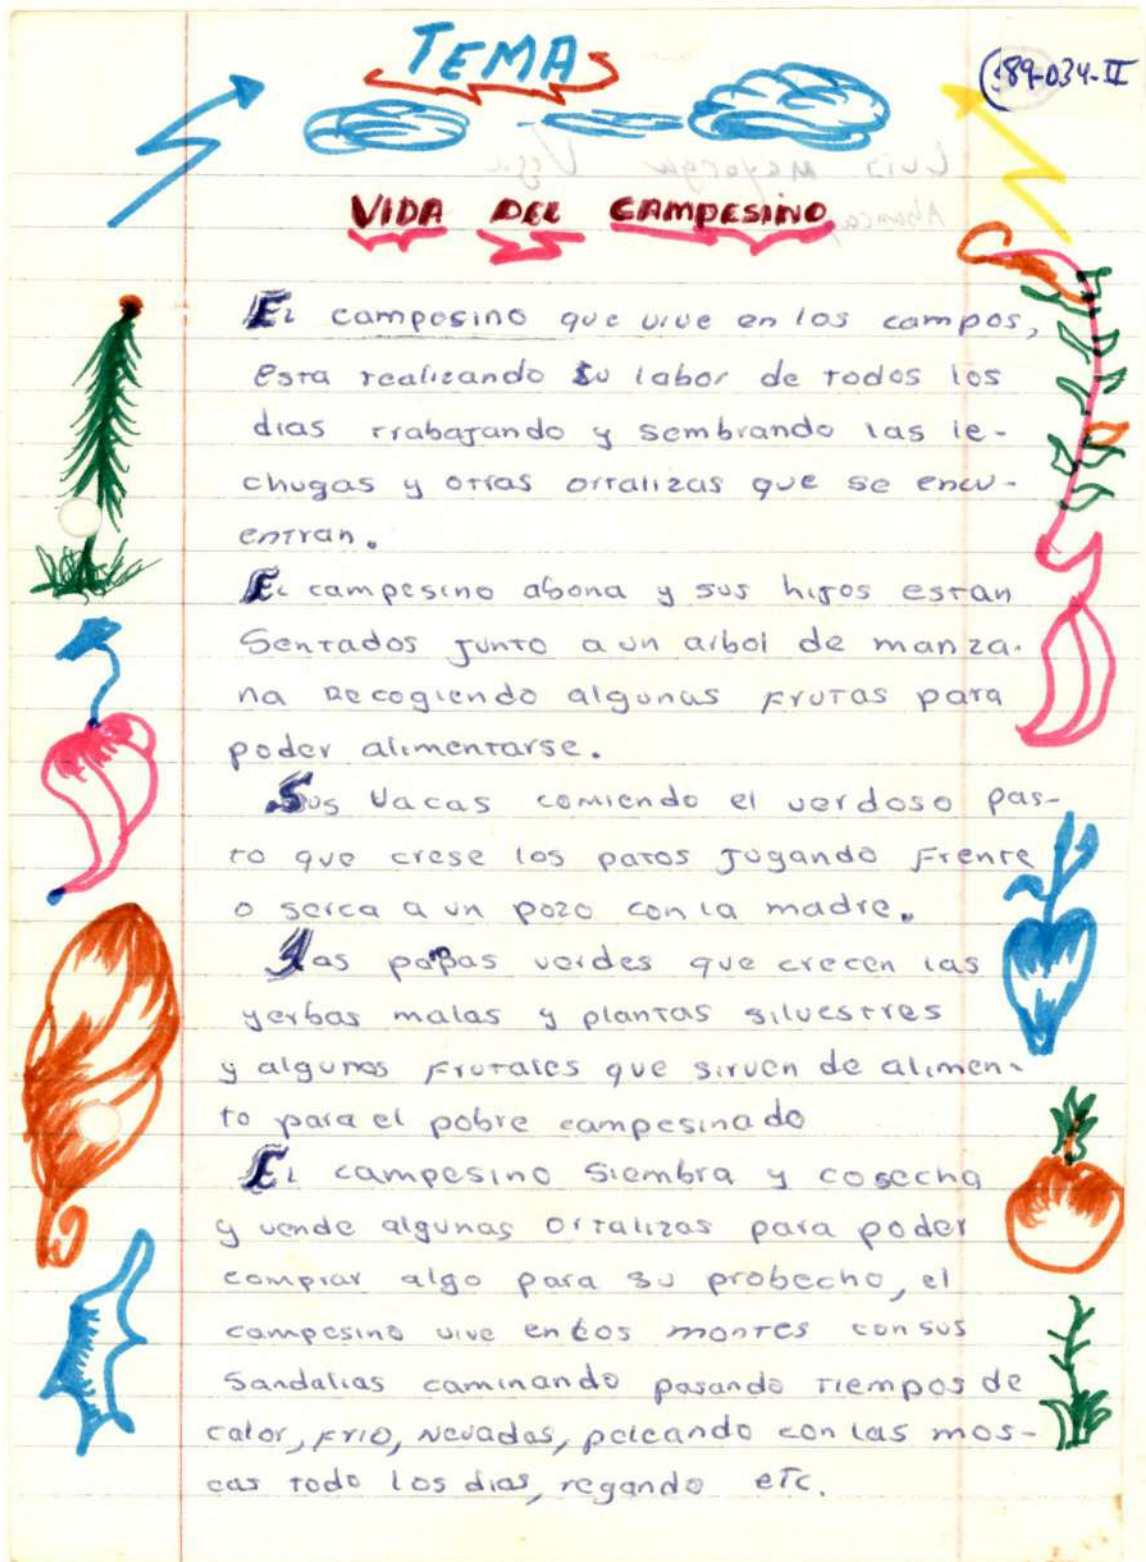 TEMA
(89-034-II
VIDA DEL CAMPESINO
El campesino que vive en los campos,
esta realizando su labor de todos los
dias trabajando y sembrando las le-
chugas y otras ortalizas que se encu-
entran.
El campesino abona y sus hijos estan
Sentados junto a un arbol de manza-
na Recogiendo algunas frutas para
poder alimentarse.
Sus Vacas comiendo el verdoso pas-
to que crese los patos jugando frente
o serca a un pozo con la madre.
Las papas verdes que crecen las
yerbas malas y plantas silvestres
y algunos frutales que sirven de alimen-
to para el pobre campesinado
El campesino siembra y cosecha
y vende algunas ortalizas para poder
comprar algo para su probecho, el
campesino vive en los montes con sus
Sandalias caminando pasando tiempos de
calor, frio, Nevadas, peleando con las mos-
cas todo los dias, regando etc.